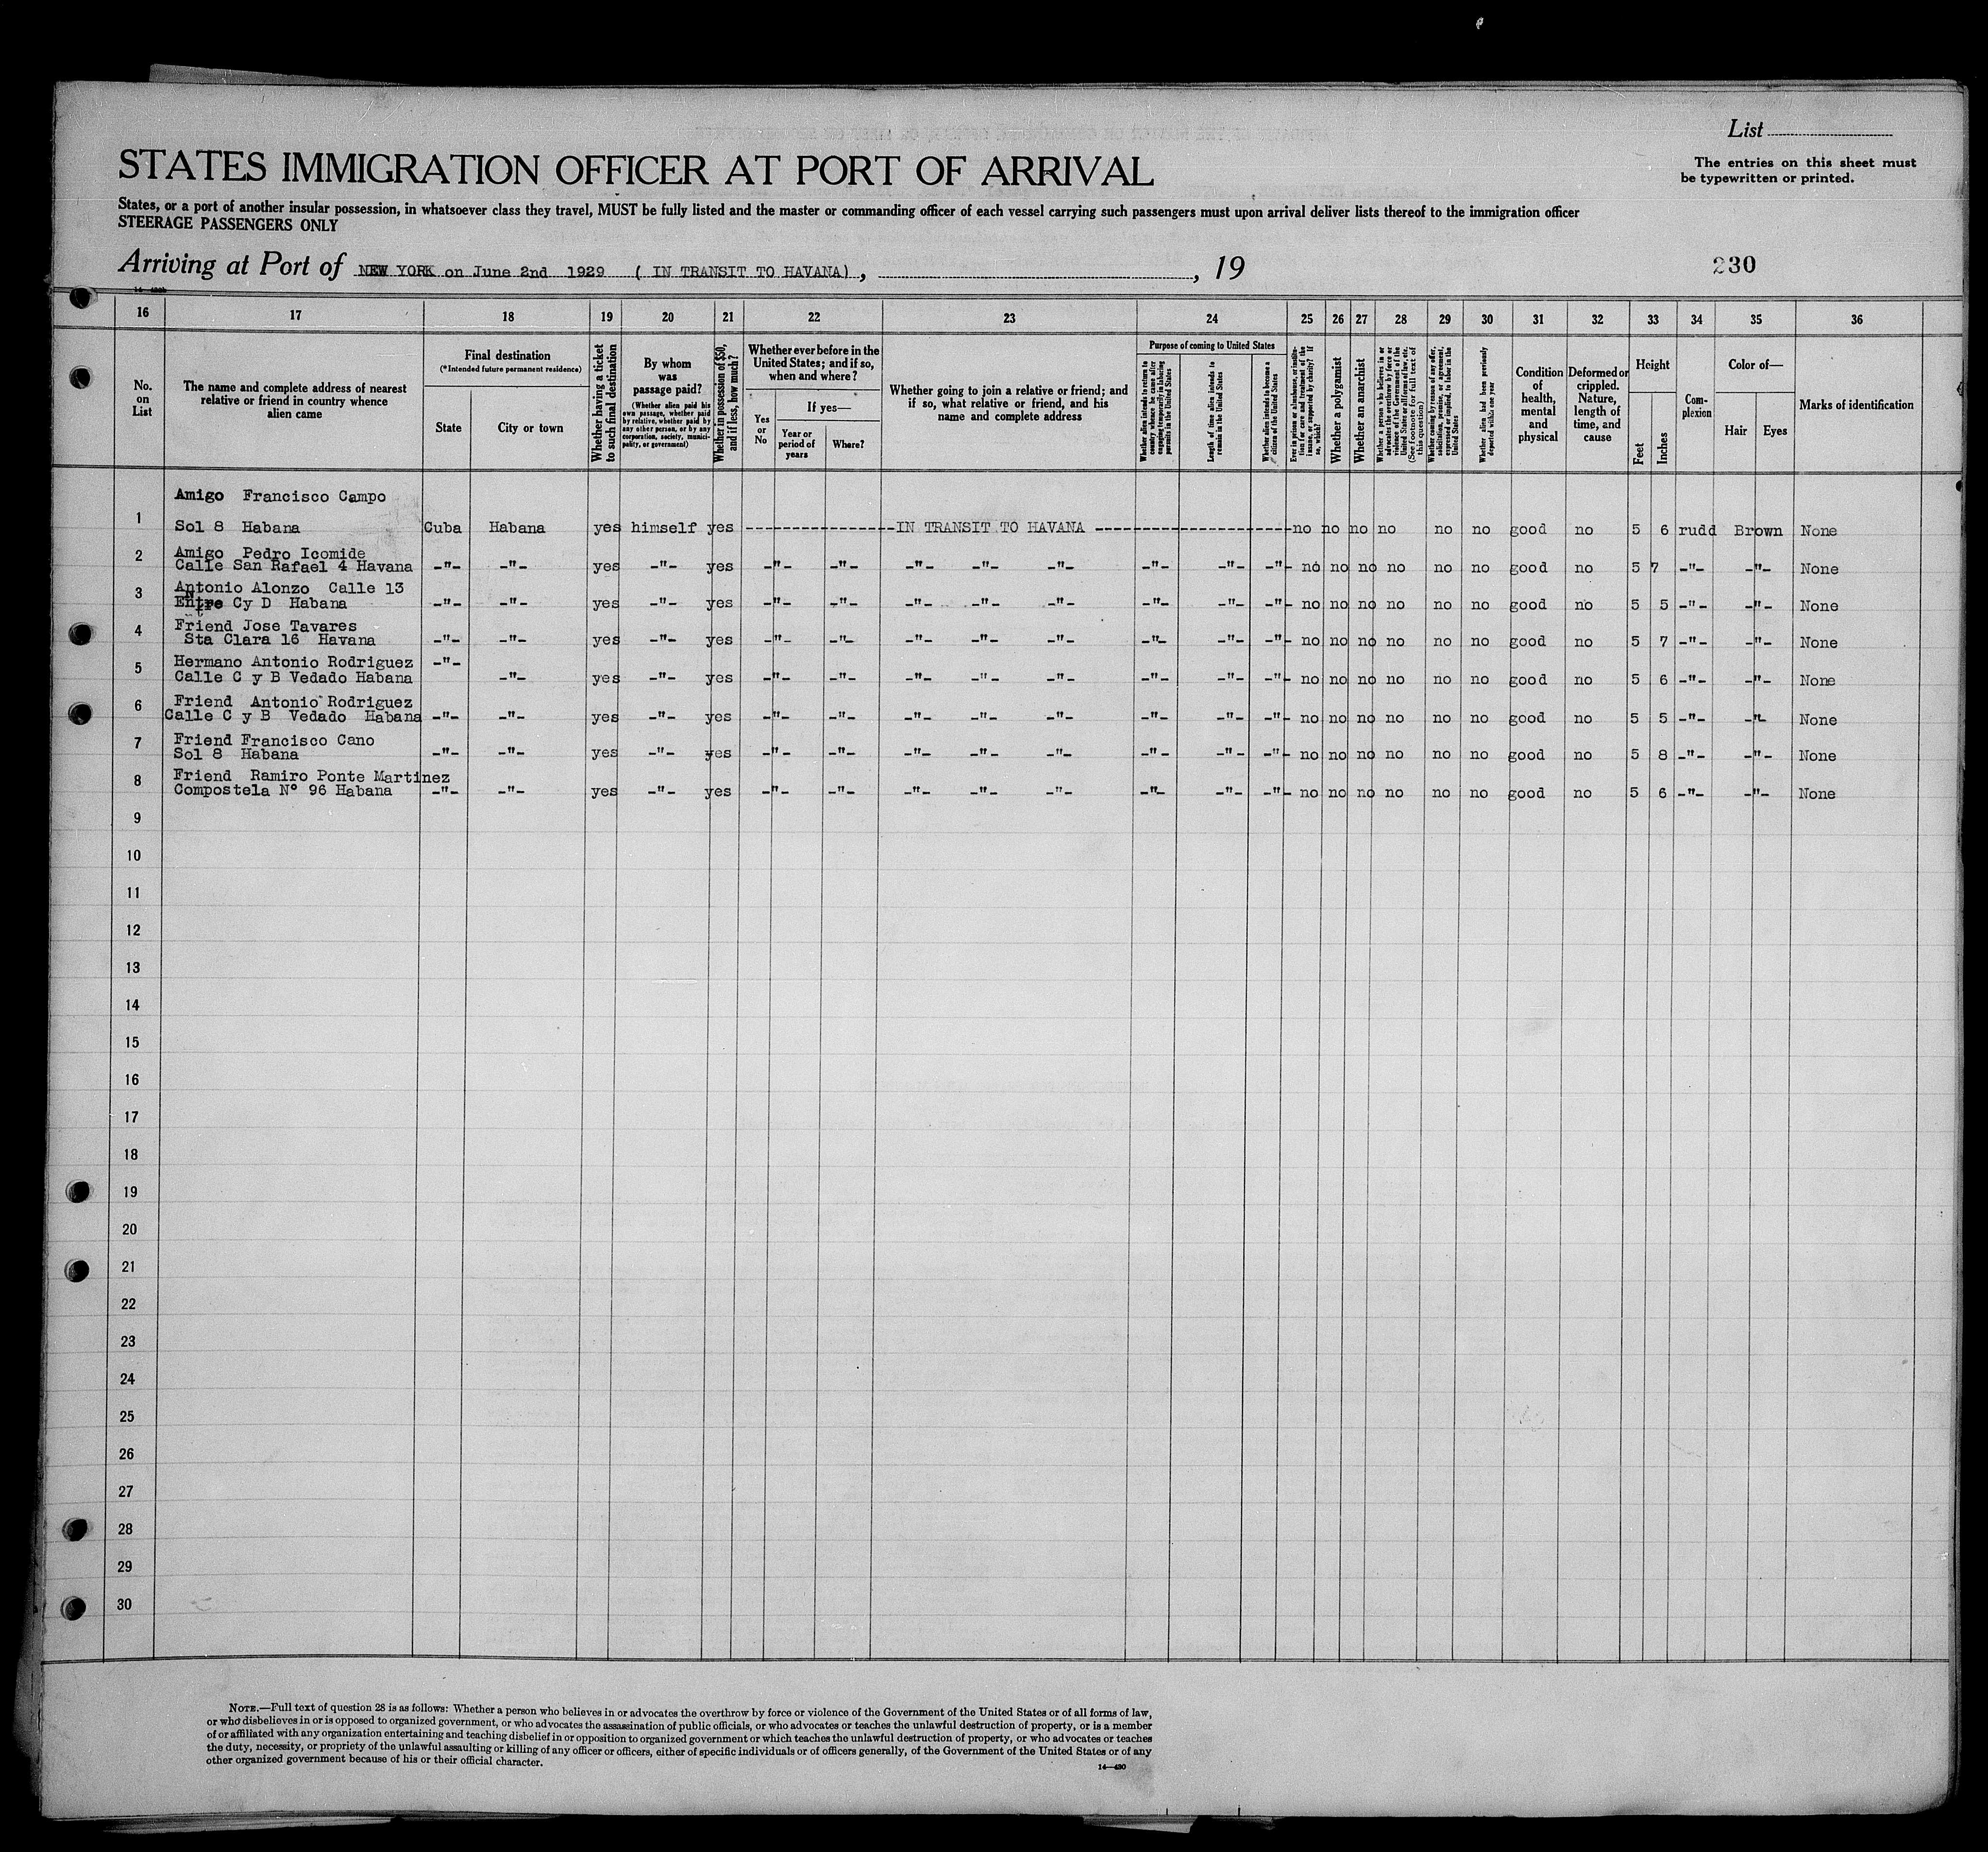 List
The entries on this sheet must
be typewritten or printed.
STATES IMMIGRATION OFFICER AT PORT OF ARRIVAL
States, or a port of another insular possession, in whatsoever class they travel, MUST be fully listed and the master or commanding officer of each vessel carrying such passengers must upon arrival deliver lists thereof to the immigration officer
STEERAGE PASSENGERS ONLY
Arriving at Port of NEW YORK on June 2nd 1929 ( IN TRANSIT TO HAVANA) , , 19
230
16 17 18 19 20 21 22 23 24 25 26 27 28 29 30 31 32 33 34 35 36
No.
on
List
The name and complete address of nearest
relative or friend in country whence
alien came
Final destination
(*Intended future permanent residence)
State
City or town
Whether having a ticket
to such final destination
By whom
was
passage paid?
(Whether alien paid his
own passage, whether paid
by relative, whether paid by
any other person, or by any
corporation, society, munici-
pality, or government)
Whether in possession of $50,
and if less, how much?
Whether ever before in the
United States; and if so,
when and where?
Yes
or
No
If yes—
Year or
period of
years
Where?
Whether going to join a relative or friend; and
if so, what relative or friend, and his
name and complete address
Purpose of coming to United States
Whether alien intends to return to
country whence he came after
engaging temporarily in laboring
pursuits in the United States
Length of time alien intends to
remain in the United States
Whether alien intends to become a
citizen of the United States
Ever in prison or almshouse, or institu-
tion for care and treatment of the
insane, or supported by charity? If
so, which?
Whether a polygamist
Whether an anarchist
Whether a person who believes in or
advocates the overthrow by force or
violence of the Government of the
United States or all forms of law, etc.
(See footnote for full text of
this question)
Whether coming by reason of any offer,
solicitation, promise, or agreement,
expressed or implied, to labor in the
United States
Whether alien had been previously
deported within one year
Condition
of
health,
mental
and
physical
Deformed or
crippled.
Nature,
length of
time, and
cause
Height
Feet
Inches
Com-
plexion
Color of—
Hair
Eyes
Marks of identification
Amigo Francisco Campo
1 Sol 8 Habana Cuba Habana yes himself yes ---------------IN TRANSIT TO HAVANA --------------------no no no no no no good no 5 6 rudd Brown None
2 Amigo Pedro Icomide
Calle San Rafael 4 Havana -"- -"- yes -"- yes -"- -"- -"- -"- -"- -"- -"- -"- no no no no no no good no 5 7 -"- -"- None
3 Antonio Alonzo Calle 13
Entre Cy D Habana -"- -"- yes -"- yes -"- -"- -"- -"- -"- -"- -"- -"- no no no no no no good no 5 5 -"- -"- None
4 Friend Jose Tavares
Sta Clara 16 Havana -"- -"- yes -"- yes -"- -"- -"- -"- -"- -"- -"- -"- no no no no no no good no 5 7 -"- -"- None
5 Hermano Antonio Rodriguez -"-
Calle C y B Vedado Habana -"- yes -"- yes -"- -"- -"- -"- -"- -"- -"- -"- no no no no no no good no 5 6 -"- -"- None
6 Friend Antonio Rodriguez
Calle C y B Vedado Habana -"- -"- yes -"- yes -"- -"- -"- -"- -"- -"- -"- -"- no no no no no no good no 5 5 -"- -"- None
7 Friend Francisco Cano
Sol 8 Habana -"- -"- yes -"- yes -"- -"- -"- -"- -"- -"- -"- -"- no no no no no no good no 5 8 -"- -"- None
8 Friend Ramiro Ponte Martinez
Compostela Nº 96 Habana -"- -"- yes -"- yes -"- -"- -"- -"- -"- -"- -"- -"- no no no no no no good no 5 6 -"- -"- None
9
10
11
12
13
14
15
16
17
18
19
20
21
22
23
24
25
26
27
28
29
30
NOTE.—Full text of question 28 is as follows: Whether a person who believes in or advocates the overthrow by force or violence of the Government of the United States or of all forms of law,
or who disbelieves in or is opposed to organized government, or who advocates the assassination of public officials, or who advocates or teaches the unlawful destruction of property, or is a member
of or affiliated with any organization entertaining and teaching disbelief in or opposition to organized government or which teaches the unlawful destruction of property, or who advocates or teaches
the duty, necessity, or propriety of the unlawful assaulting or killing of any officer or officers, either of specific individuals or of officers generally, of the Government of the United States or of any
other organized government because of his or their official character.
14—430